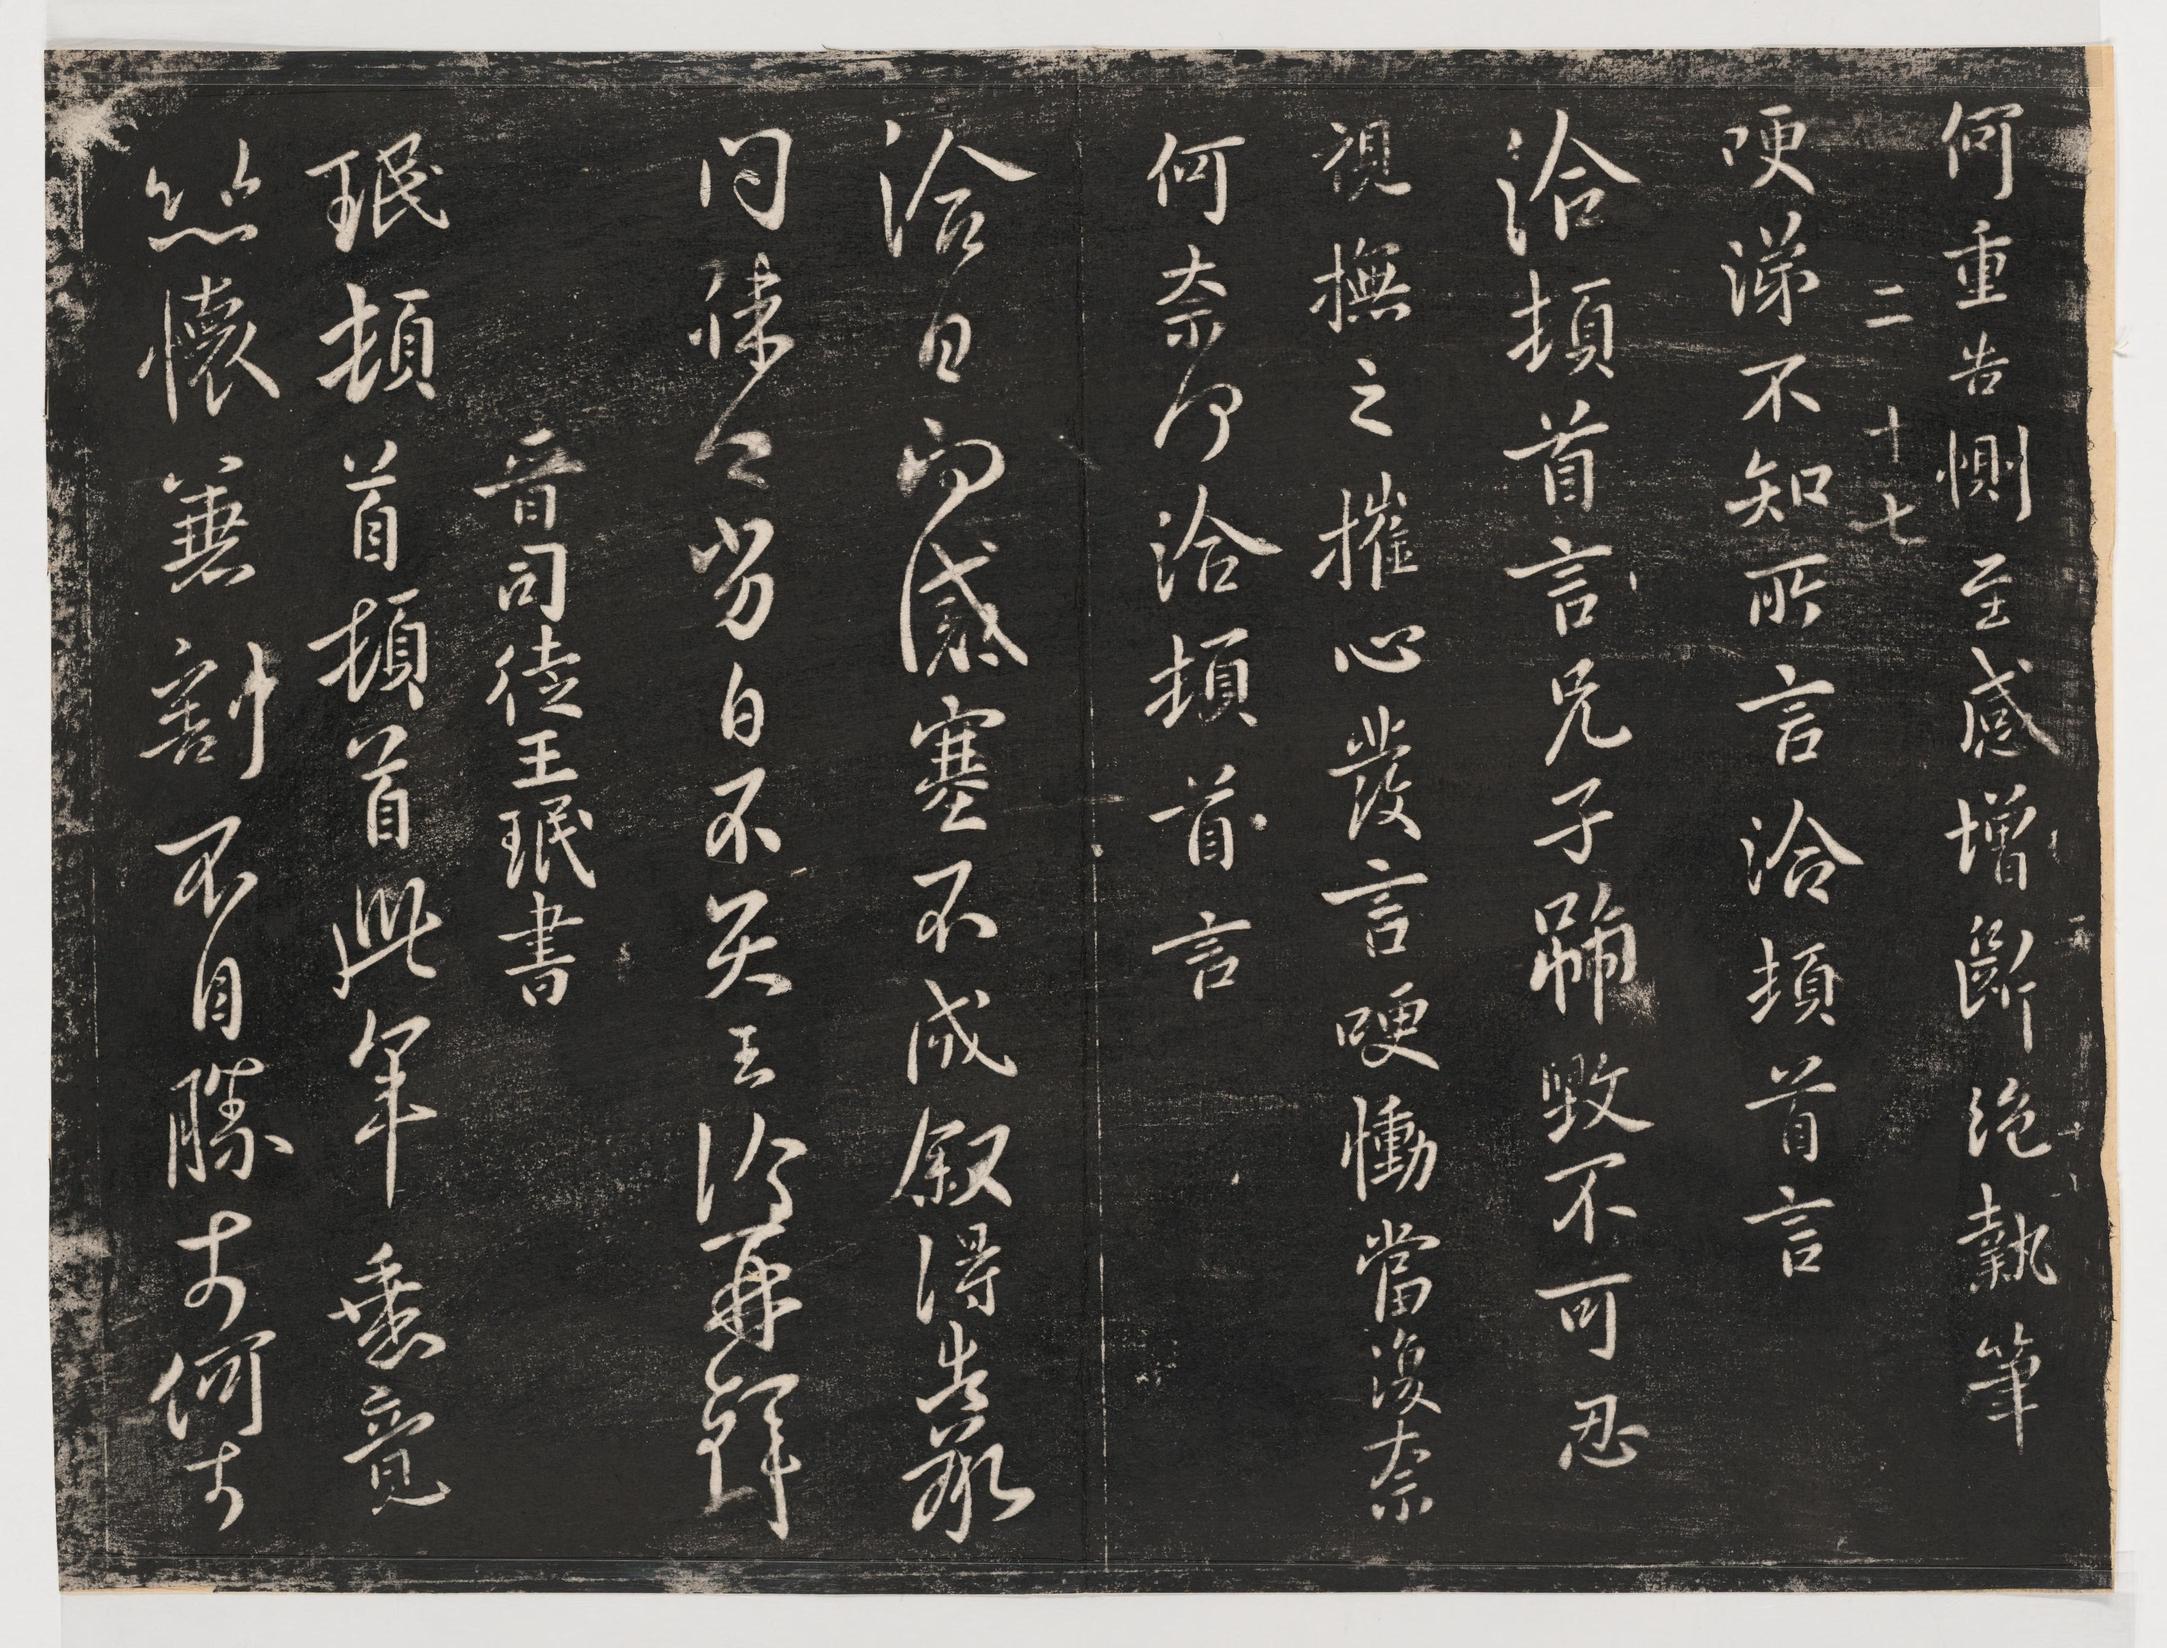 何重告惻至感增斷絕執筆
二 十七
哽涕不知所言洽頓首言
洽頓首言兄子號毀不可忍
視撫之摧心發言哽慟當復奈
何奈何洽頓首言
洽白 感塞不成叙得告承
問 勞白不具王洽再拜
晉司徒王珉書
珉頓首頓首此年垂竟
悲懷兼割不自勝奈何奈